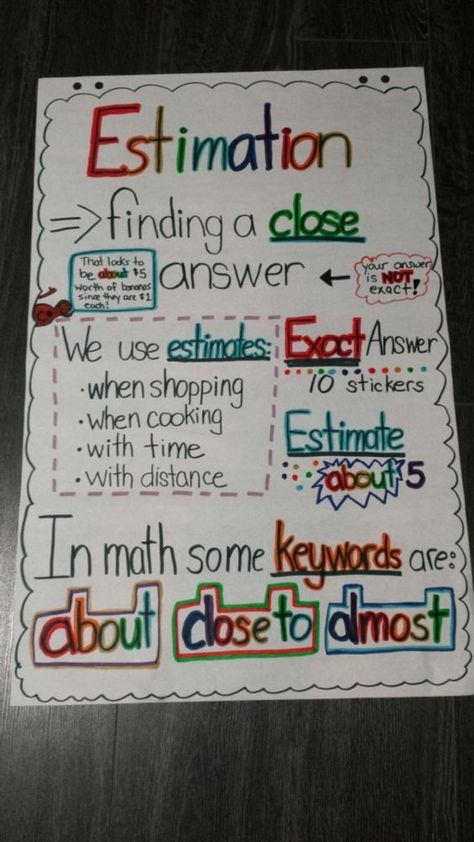 Estimation
⇒ finding a close
answer ←
your answer
is NOT
exact!
That looks to
be about $5
worth of bananas
since they are $1
each!
We use estimates:
• when shopping
• when cooking
• with time
• with distance
Exact Answer
10 stickers
Estimate
about 5
In math some keywords are:
about close to almost